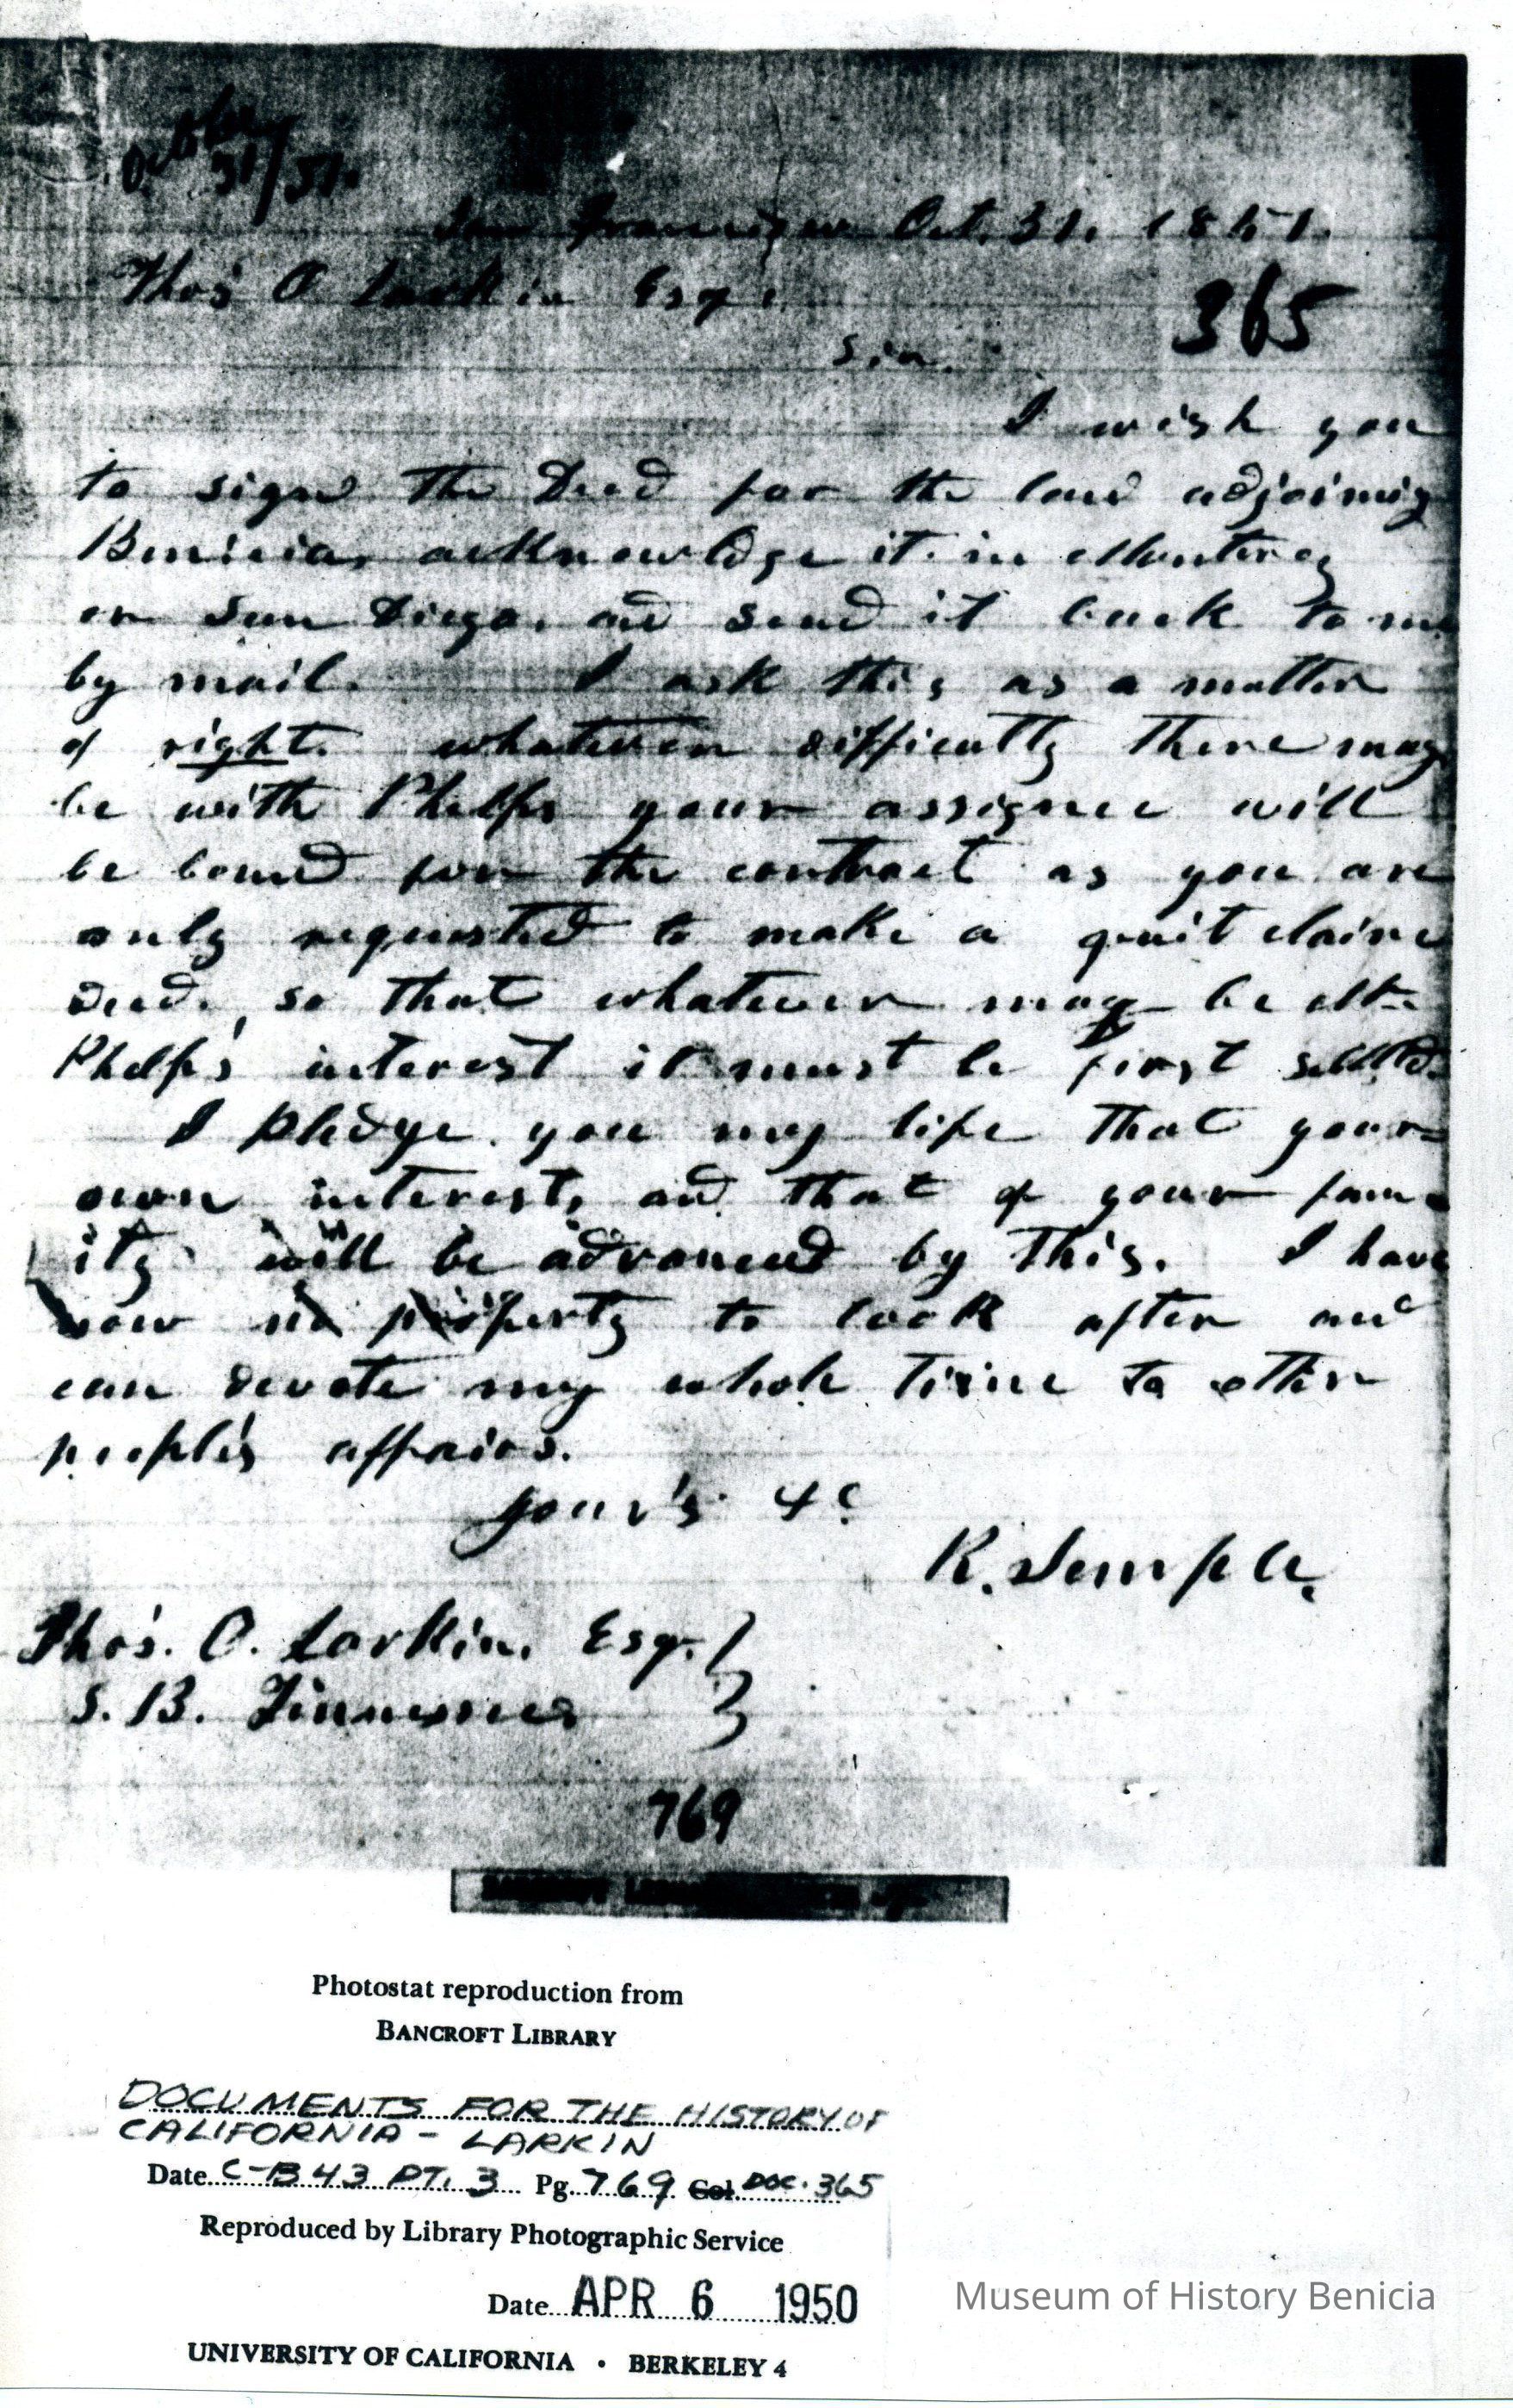 October
31/51.
San Francisco Oct. 31. 1851.
Thos O Larkin Esqr.
365
Sir.
I wish you
to sign the Deed for the land adjoining
Benicia, acknowledge it in Monterey
or San Diego, and send it back to me
by mail. I ask this as a matter
of right. whatever difficulty there may
be with Phelps your assignee will
be bound for the contract as you are
only requested to make a quit claim
Deed, so that whatever may be
Phelps's interest it must be first settled.
I pledge you my life that your
own interest, and that of your fam-
ily will be advanced by this. I have
now no property to look after and
can devote my whole time to other
people's affairs.
Your's &c
R. Semple.
Thos. O. Larkin. Esqr. }
S. B. }
769
BANCROFT
Photostat reproduction from
BANCROFT LIBRARY
DOCUMENTS FOR THE HISTORY OF
CALIFORNIA - LARKIN
Date C-B 43 PT. 3 Pg. 769 Col. DOC. 365
Reproduced by Library Photographic Service
Date APR 6 1950
Museum of History Benicia
UNIVERSITY OF CALIFORNIA • BERKELEY 4